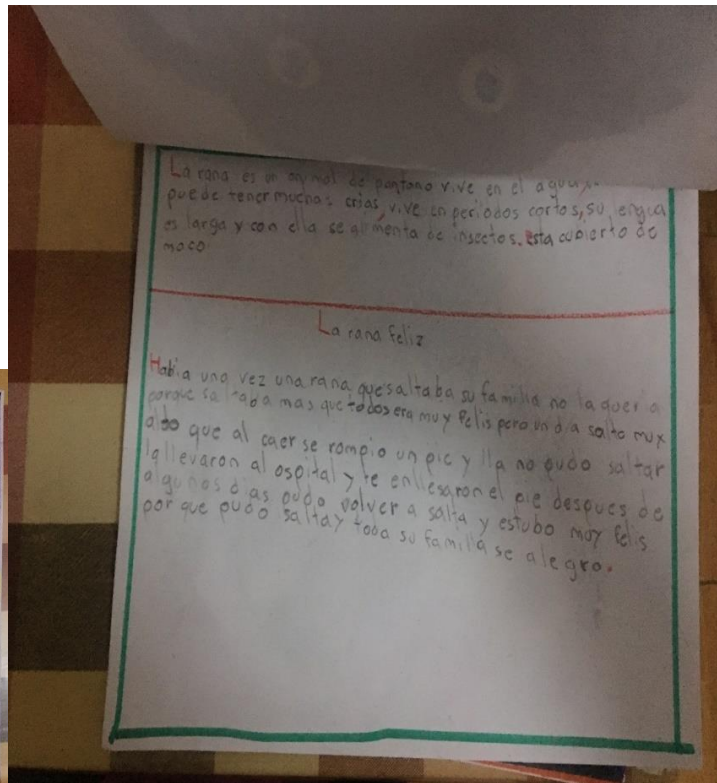 La rana es un animal de pantano vive en el agua,
puede tener muchas crias, vive en periodos cortos, su lengua
es larga y con ella se alimenta de insectos. Esta cubierto de
moco
La rana feliz
Habia una vez una rana que saltaba su familia no la queria
porque saltaba mas que todos era muy felis pero un dia salto mux
alto que al caer se rompio un pie y lla no pudo saltar
la llevaron al ospital y te enllesaron el pie despues de
algunos dias pudo volver a salta y estubo moy felis
por que pudo salta y toda su familia se alegro.